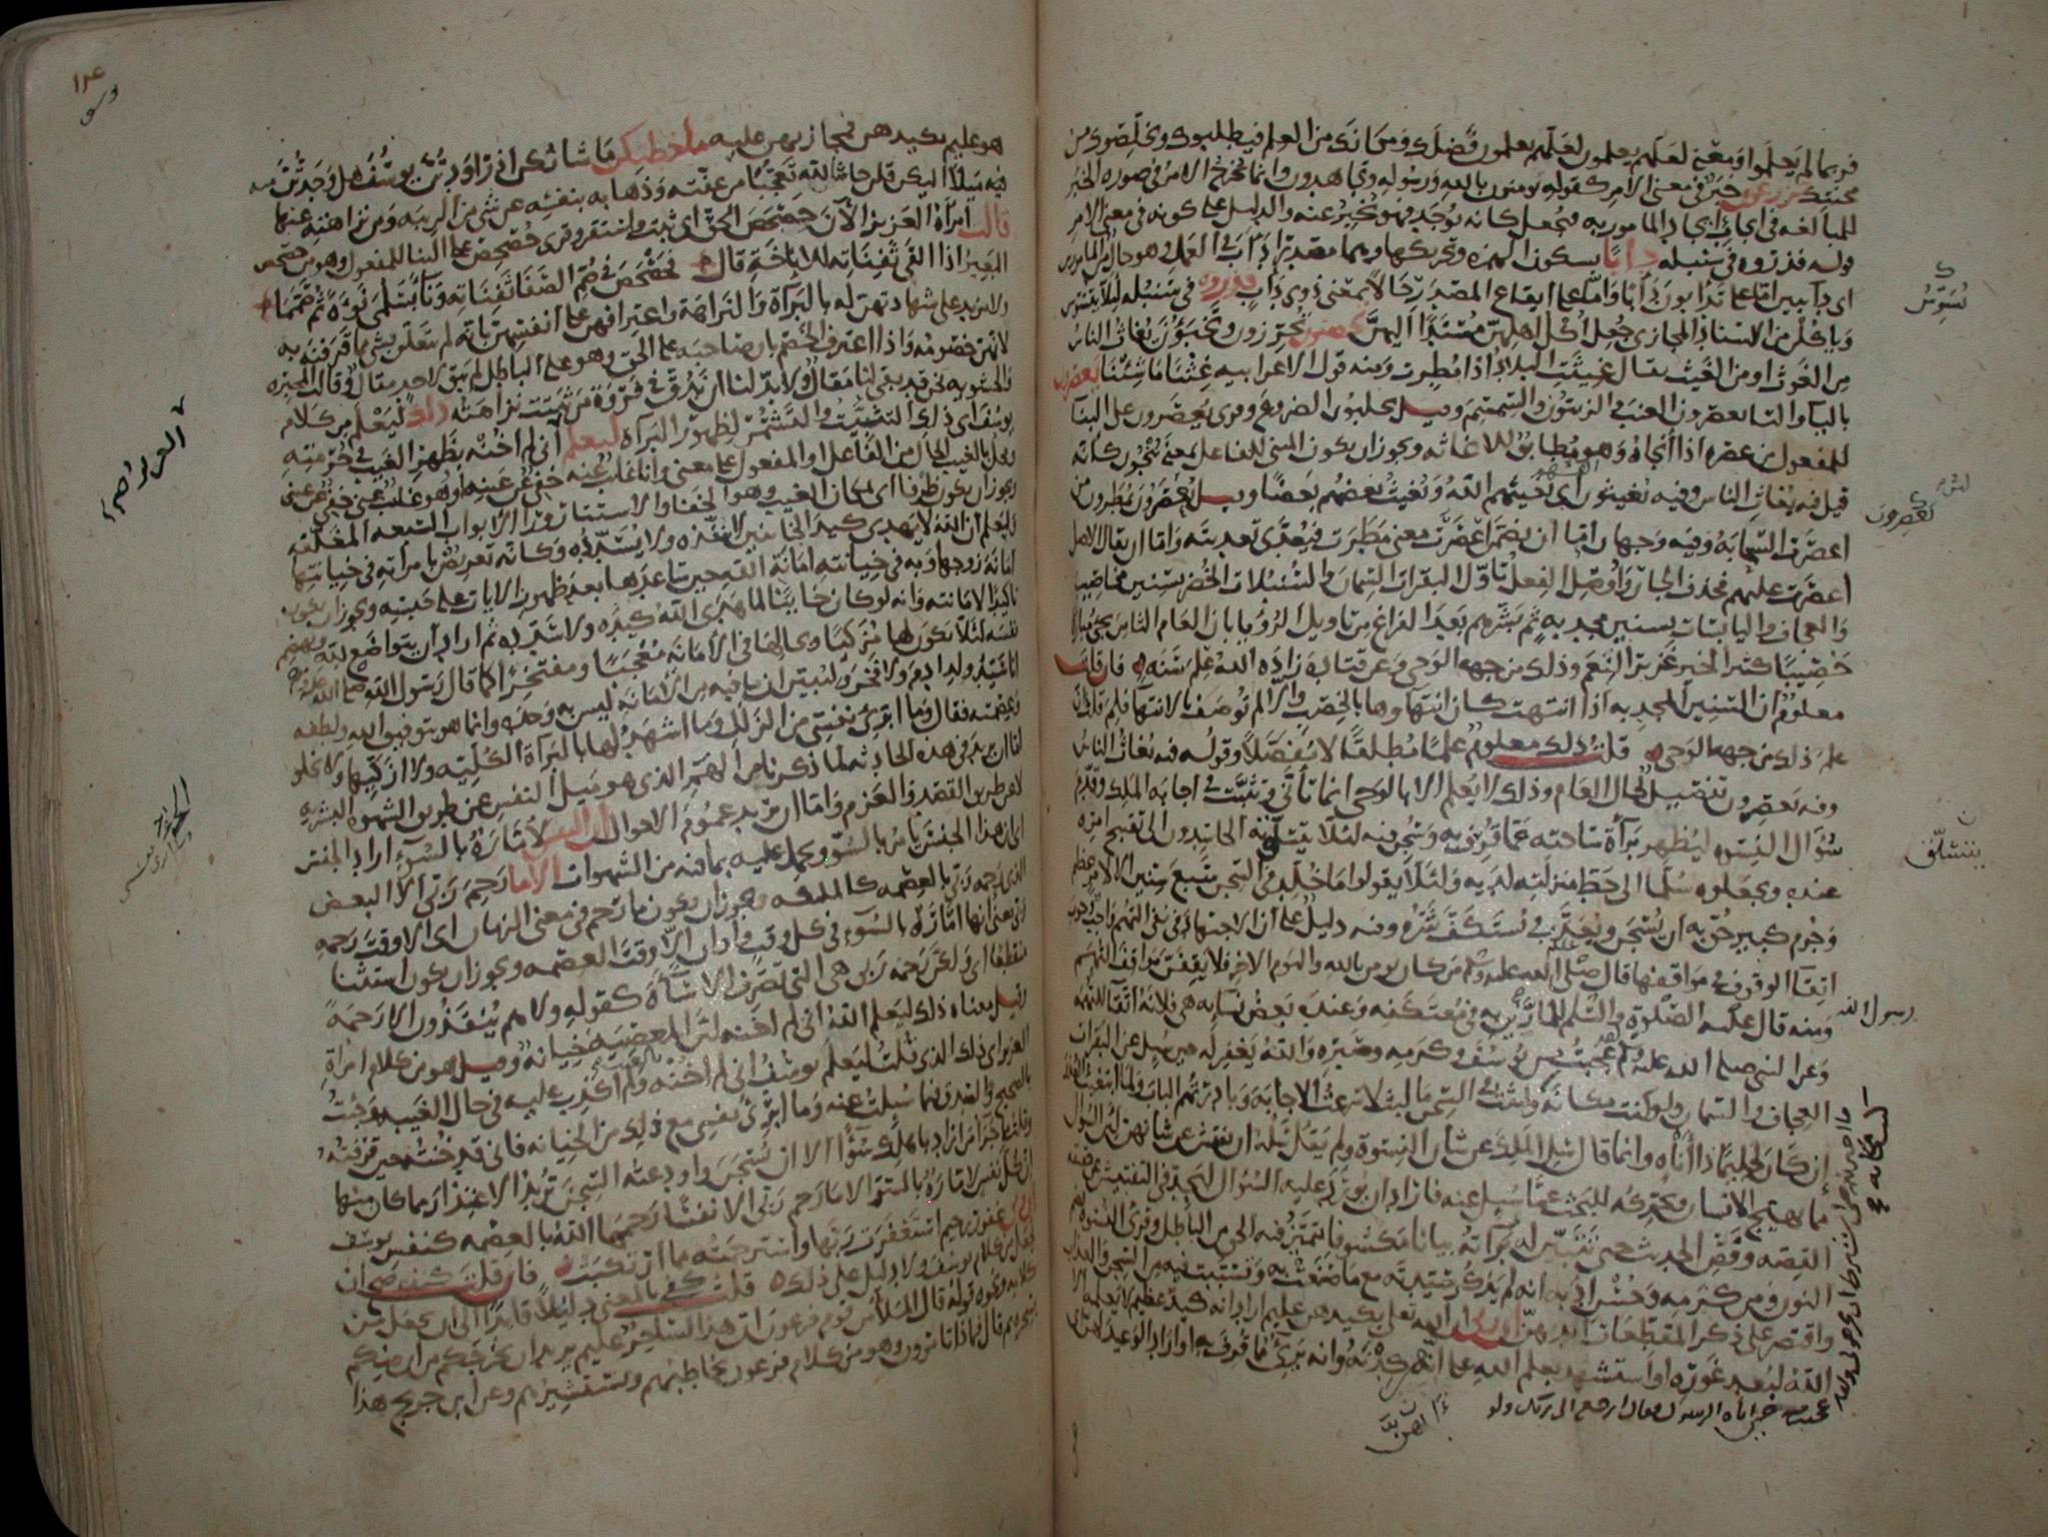 فربما لم يعلموا ومعنى لعلهم يعلمون لعلهم يعلمون فضلك ومكانك من العلم فيطلبوك ويخلصوك من
محنتك تزرعون خبر في معنى الأمر كقوله تؤمنون بالله ورسوله وتجاهدون وانما يخرج الأمر في صورة الخبر
للمبالغة في ايجاب ايجاد المامور به فيجعل كانه يوجد فهو يخبر عنه والدليل على كونه في معنى الأمر
قوله فذروه في سنبله دأبا بسكون الهمزة وتحريكها وهما مصدرا دأب في العمل وهو حال من المامورين
اى دائبين اما على تدأبون دأبا واما على ايقاع المصدر حالا بمعنى ذوى دأب فذروه في سنبله لئلا يتسوس
وياكلن من الاسناد المجازى جعل اكل اهلهن مسندا اليهن تحصنون تحرزون وتخبؤن يغاث الناس
من الغوث او من الغيث يقال غيثت البلاد اذا مطرت ومنه قول الاعرابية غثنا ما شئنا يعصرون
بالياء والتاء يعصرون العنب والزيتون والسمسم وقيل يحلبون الضروع وقرى يعصرون على البناء
للمفعول من عصره اذا أنجاه وهو مطابق للاغاثة ويجوز ان يكون المبنى للفاعل بمعنى ينجون كانه
قيل فيه يغاث الناس وفيه يغيثون اى يغيثهم الله ويغيث بعضهم بعضا وقيل يعصرون يمطرون من
اعصرت السحابة وفيه وجهان اما ان يضمن اعصرت معنى مطرت فيعدى تعديته واما ان يقال الاصل
اعصرت عليهم فحذف الجار واوصل الفعل تاول البقرات السمان والسنبلات الخضر بسنين مخاصيب
والعجاف واليابسات بسنين مجدبة ثم بشرهم بعد الفراغ من تاويل الرؤيا بان العام الثامن يجى مباركا
خصيبا كثير الخير غزير النعم وذلك من جهة الوحى وعن قتادة زاده الله علم سنة فان قلت
معلوم ان السنين المجدبة اذا انتهت كان انتهاؤها بالخصب والا لم توصف بالانتهاء فلم قلت ان
علم ذلك من جهة الوحى قلت ذلك معلوم علما مطلقا لا مفصلا وقوله فيه يغاث الناس
وفيه يعصرون تفصيل لحال العام وذلك لا يعلم الا بالوحى انما تأنى وتثبت في اجابة الملك وقدم
سؤال النسوة ليظهر براءة ساحته عما قرف به وسجن فيه لئلا يتسلق به الحاسدون الى تقبيح امره
عنده ويجعلوه سلما الى حط منزلته لديه ولئلا يقولوا ما خلد في السجن سبع سنين الا لامر عظيم
وجرم كبير حق به ان يسجن ويعذب ويستكف شره وفيه دليل على ان الاجتهاد في نفى التهم واجب وجوب
اتقاء الوقوف في مواقفها قال صلى الله عليه وسلم من كان يومن بالله واليوم الاخر فلا يقفن مواقف التهم
ومنه قال عليه الصلوة والسلم للمارين به في معتكفه وعنده بعض نسائه هى فلانة اتقاء للتهمة
وعن النبى صلى الله عليه وسلم لقد عجبت من يوسف وكرمه وصبره والله يغفر له حين سئل عن البقرات
العجاف والسمان ولو كنت مكانه ولبثت في السجن ما لبث لاسرعت الاجابة وبادرتهم الباب ولما ابتغيت العذر
ان كان لحليما ذا أناة وانما قال سل الملك عن شأن النسوة ولم يقل سله ان يفتش عن شانهن لان السؤال
مما يهيج الانسان ويحركه للبحث عما سئل عنه فاراد ان يورد عليه السؤال ليجد في التفتيش عن حقيقة
القصة وفص الحديث حتى يتبين له براءته بيانا مكشوفا يتميز فيه الحق من الباطل وقرى النسوة بضم
النون ومن كرمه وحسن ادبه انه لم يذكر سيدته مع ما صنعت به وتسببت فيه من السجن والعذاب
واقتصر على ذكر المقطعات ايديهن ان ربى ان الله تعالى بكيدهن عليم اراد انه كيد عظيم لا يعلمه الا
الله لبعد غوره او استشهد بعلم الله على انهن كدنه وانه برئ مما قرف به او اراد الوعيد لهن اى
هو عليم بكيدهن فمجازيهن عليه ما خطبكن ما شانكن اذ راودتن يوسف هل وجدتن منه
فيه ميلا اليكن قلن حاش لله تعجبا من عفته وذهابه بنفسه عن شى من الريبة ومن نزاهته عنها
قالت امرأة العزيز الآن حصحص الحق اى ثبت واستقر وقرى حصحص على البناء للمفعول وهو من حصحص
البعير اذا القى ثفناته للاناخة قال فحصحص في صم الصفا ثفناته وناء بسلمى نوءة ثم صمما
ولا مزيد على شهادتهن له بالبراءة والنزاهة واعترافهن على انفسهن بانه لم يتعلق بشى مما قرفنه به
لانهن خصومه واذا اعترف الخصم بان صاحبه على الحق وهو على الباطل لم يبق لاحد مقال وقالت المجبرة
والحشوية نحن قد بقى لنا مقال ولا بد لنا ان ندق في فروة من ثبتت نزاهته ذلك ليعلم من كلام
يوسف اى ذلك التثبت والتشمر لظهور البراءة ليعلم انى لم اخنه بظهر الغيب في حرمته
ومحل بالغيب الحال من الفاعل او المفعول على معنى وانا غائب عنه خفى عن عينه او وهو غائب عنى خفى عن عينى
ويجوز ان يكون ظرفا اى بمكان الغيب وهو الخفاء والاستتار وراء الابواب السبعة المغلقة
وليعلم ان الله لا يهدى كيد الخائنين لا ينفذه ولا يسدده وكانه تعريض بامرأته في خيانتها
امانة زوجها وبه في خيانته امانة الله حين ساعدها بعد ظهور الايات على حبسه ويجوز ان يكون
تاكيدا لامانته وانه لو كان خائنا لما هدى الله كيده ولا سدده ثم اراد ان يتواضع لله ويهضم
نفسه لئلا يكون لها مزكيا وبحالها في الامانة معجبا ومفتخرا كما قال رسول الله صلى الله عليه وسلم
انا سيد ولد ادم ولا فخر وليبين ان ما فيه من الامانة ليس به وحده وانما هو بتوفيق الله ولطفه
وعصمته فقال وما ابرئ نفسى من الزلل وما اشهد لها بالبراءة الكلية ولا ازكيها ولا يخلو
اما ان يريد في هذه الحادثة لما ذكرنا من الهم الذى هو ميل النفس عن طريق الشهوة البشرية
لا عن طريق القصد والعزم واما ان يريد عموم الاحوال ان النفس لامارة بالسوء اراد الجنس
اى ان هذا الجنس يامر بالسوء ويحمل عليه بما فيه من الشهوات الا ما رحم ربى الا البعض
الذى رحمه ربى بالعصمة كالملائكة ويجوز ان يكون ما رحم في معنى الزمان اى الا وقت رحمة
ربى يعنى انها امارة بالسوء في كل وقت واوان الا وقت العصمة ويجوز ان يكون استثناء
منقطعا اى ولكن رحمة ربى هى التى تصرف الاساءة كقوله ولا هم ينقذون الا رحمة
وقيل معناه ذلك ليعلم الله انى لم اخنه لان المعصية خيانة وقيل هو من كلام امرأة
العزيز اى ذلك الذى قلت ليعلم يوسف انى لم اخنه ولم اكذب عليه في حال الغيبة وجئت
بالصحيح والصدق فيما سئلت عنه وما ابرئ نفسى مع ذلك من الخيانة فانى قد خنته حين قرفته
وقلت ما جزاء من اراد باهلك سوءا الا ان يسجن واودعته السجن تريد الاعتذار مما كان منها
ان كل نفس لامارة بالسوء الا ما رحم ربى الا نفسا رحمها الله بالعصمة كنفس يوسف
ان ربى غفور رحيم استغفرت ربها واسترحمته مما ارتكبت فان قلت كيف صح ان
يجعل من كلام يوسف ولا دليل على ذلك قلت كفى بالمعنى دليلا قائدا الى ان يجعل من
كلامه ونحوه قوله قال الملأ من قوم فرعون ان هذا لساحر عليم يريد ان يخرجكم من ارضكم
بسحره ثم قال فماذا تأمرون وهو من كلام فرعون يخاطبهم ويستشيرهم وعن ابن جريج هذا